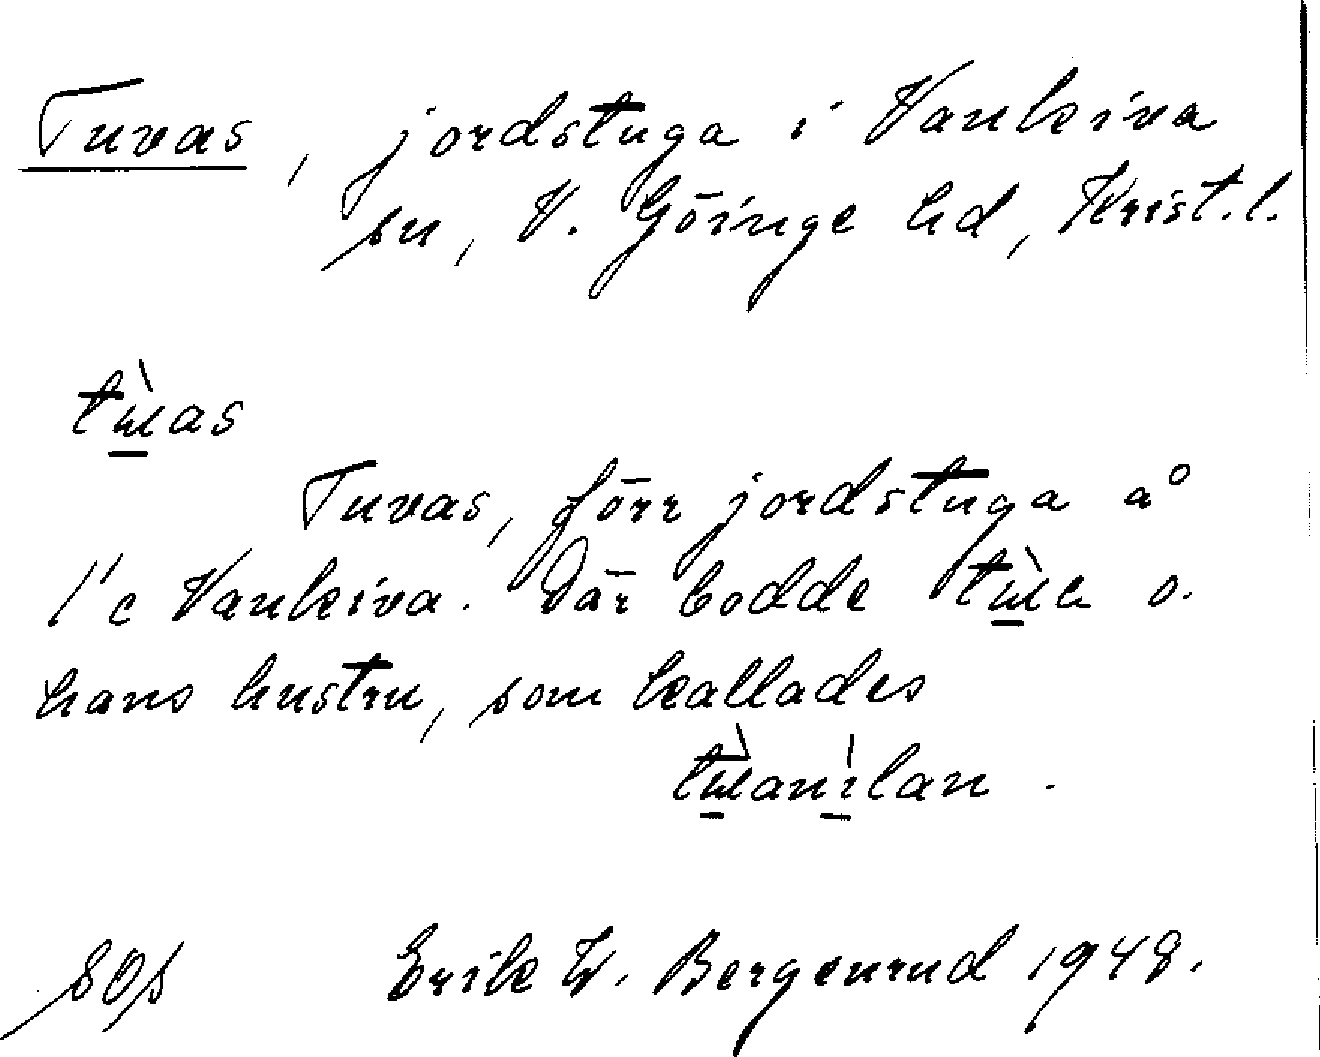 Tuvas, jordstuga i Vankiva
sn, V. Göinge hd, Krist.l.
tɯ̠̀as
Tuvas, förr jordstuga å
1'c Vankiva. Där bodde tɯ̠̀a o.
hans hustru, som kallades
tɯ̠̀anı̠̀lan.
SOS Erik W. Bergenrud 1948.